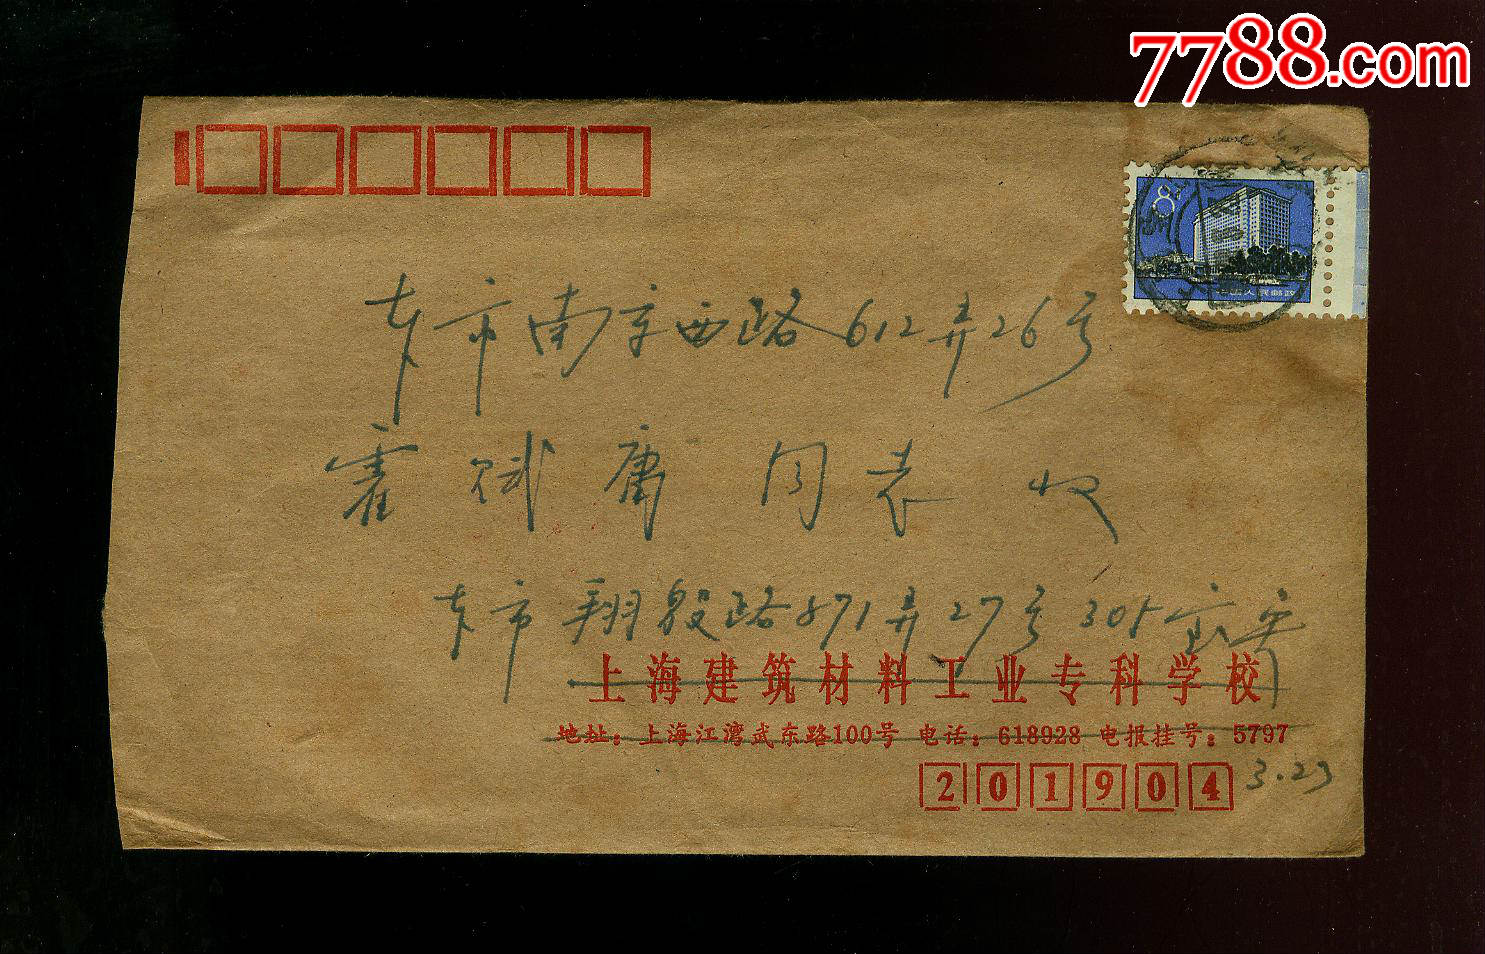 7788.com
8
本市南京西路612弄26号
霍斌庸同志收
本市翔殷路871弄27号305室
上海建筑材料工业专科学校
地址：上海江湾武东路100号 电话：618928 电报挂号：5797
201904 3.23